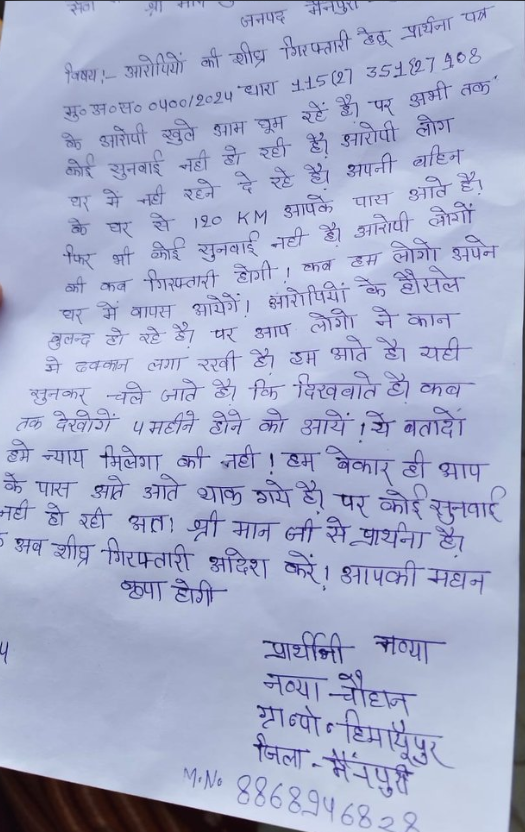 जनपद मैनपुरी
विषय:- आरोपियों की शीघ्र गिरफ्तारी हेतु प्रार्थना पत्र
मु० अ० सं० 0400/2024 धारा 115(2) 351(2)
के आरोपी खुले आम घूम रहें है। पर अभी तक
कोई सुनवाई नही हो रही है। आरोपी लोग
घर में नही रहने दे रहे है। अपनी बहिन
के घर से 120 KM आपके पास आते है।
फिर भी कोई सुनवाई नही है। आरोपी लोगों
की कब गिरफ्तारी होगी! कब हम लोगो अपने
घर में वापस आयेगें! आरोपियों के हौसले
बुलन्द हो रहे है। पर आप लोगो ने कान
मे ढक्कान लगा रखी है। हम आते है। यही
सुनकर चले जाते है। कि दिखवाते है। कब
तक देखोगें 4 महीने होने को आयें! ये बतादों
हमे न्याय मिलेगा की नही! हम बेकार ही आप
के पास आते आते थाक गये है। पर कोई सुनवाई
नही हो रही अत। श्री मान जी से प्रार्थना है।
अब शीघ्र गिरफ्तारी आदेश करें! आपकी महान
कृपा होगी
प्रार्थीनी नव्या
नव्या चौहान
ग्रा०पो०हिमायूँपुर
जिला-मैनपुरी
M.No 8868946828